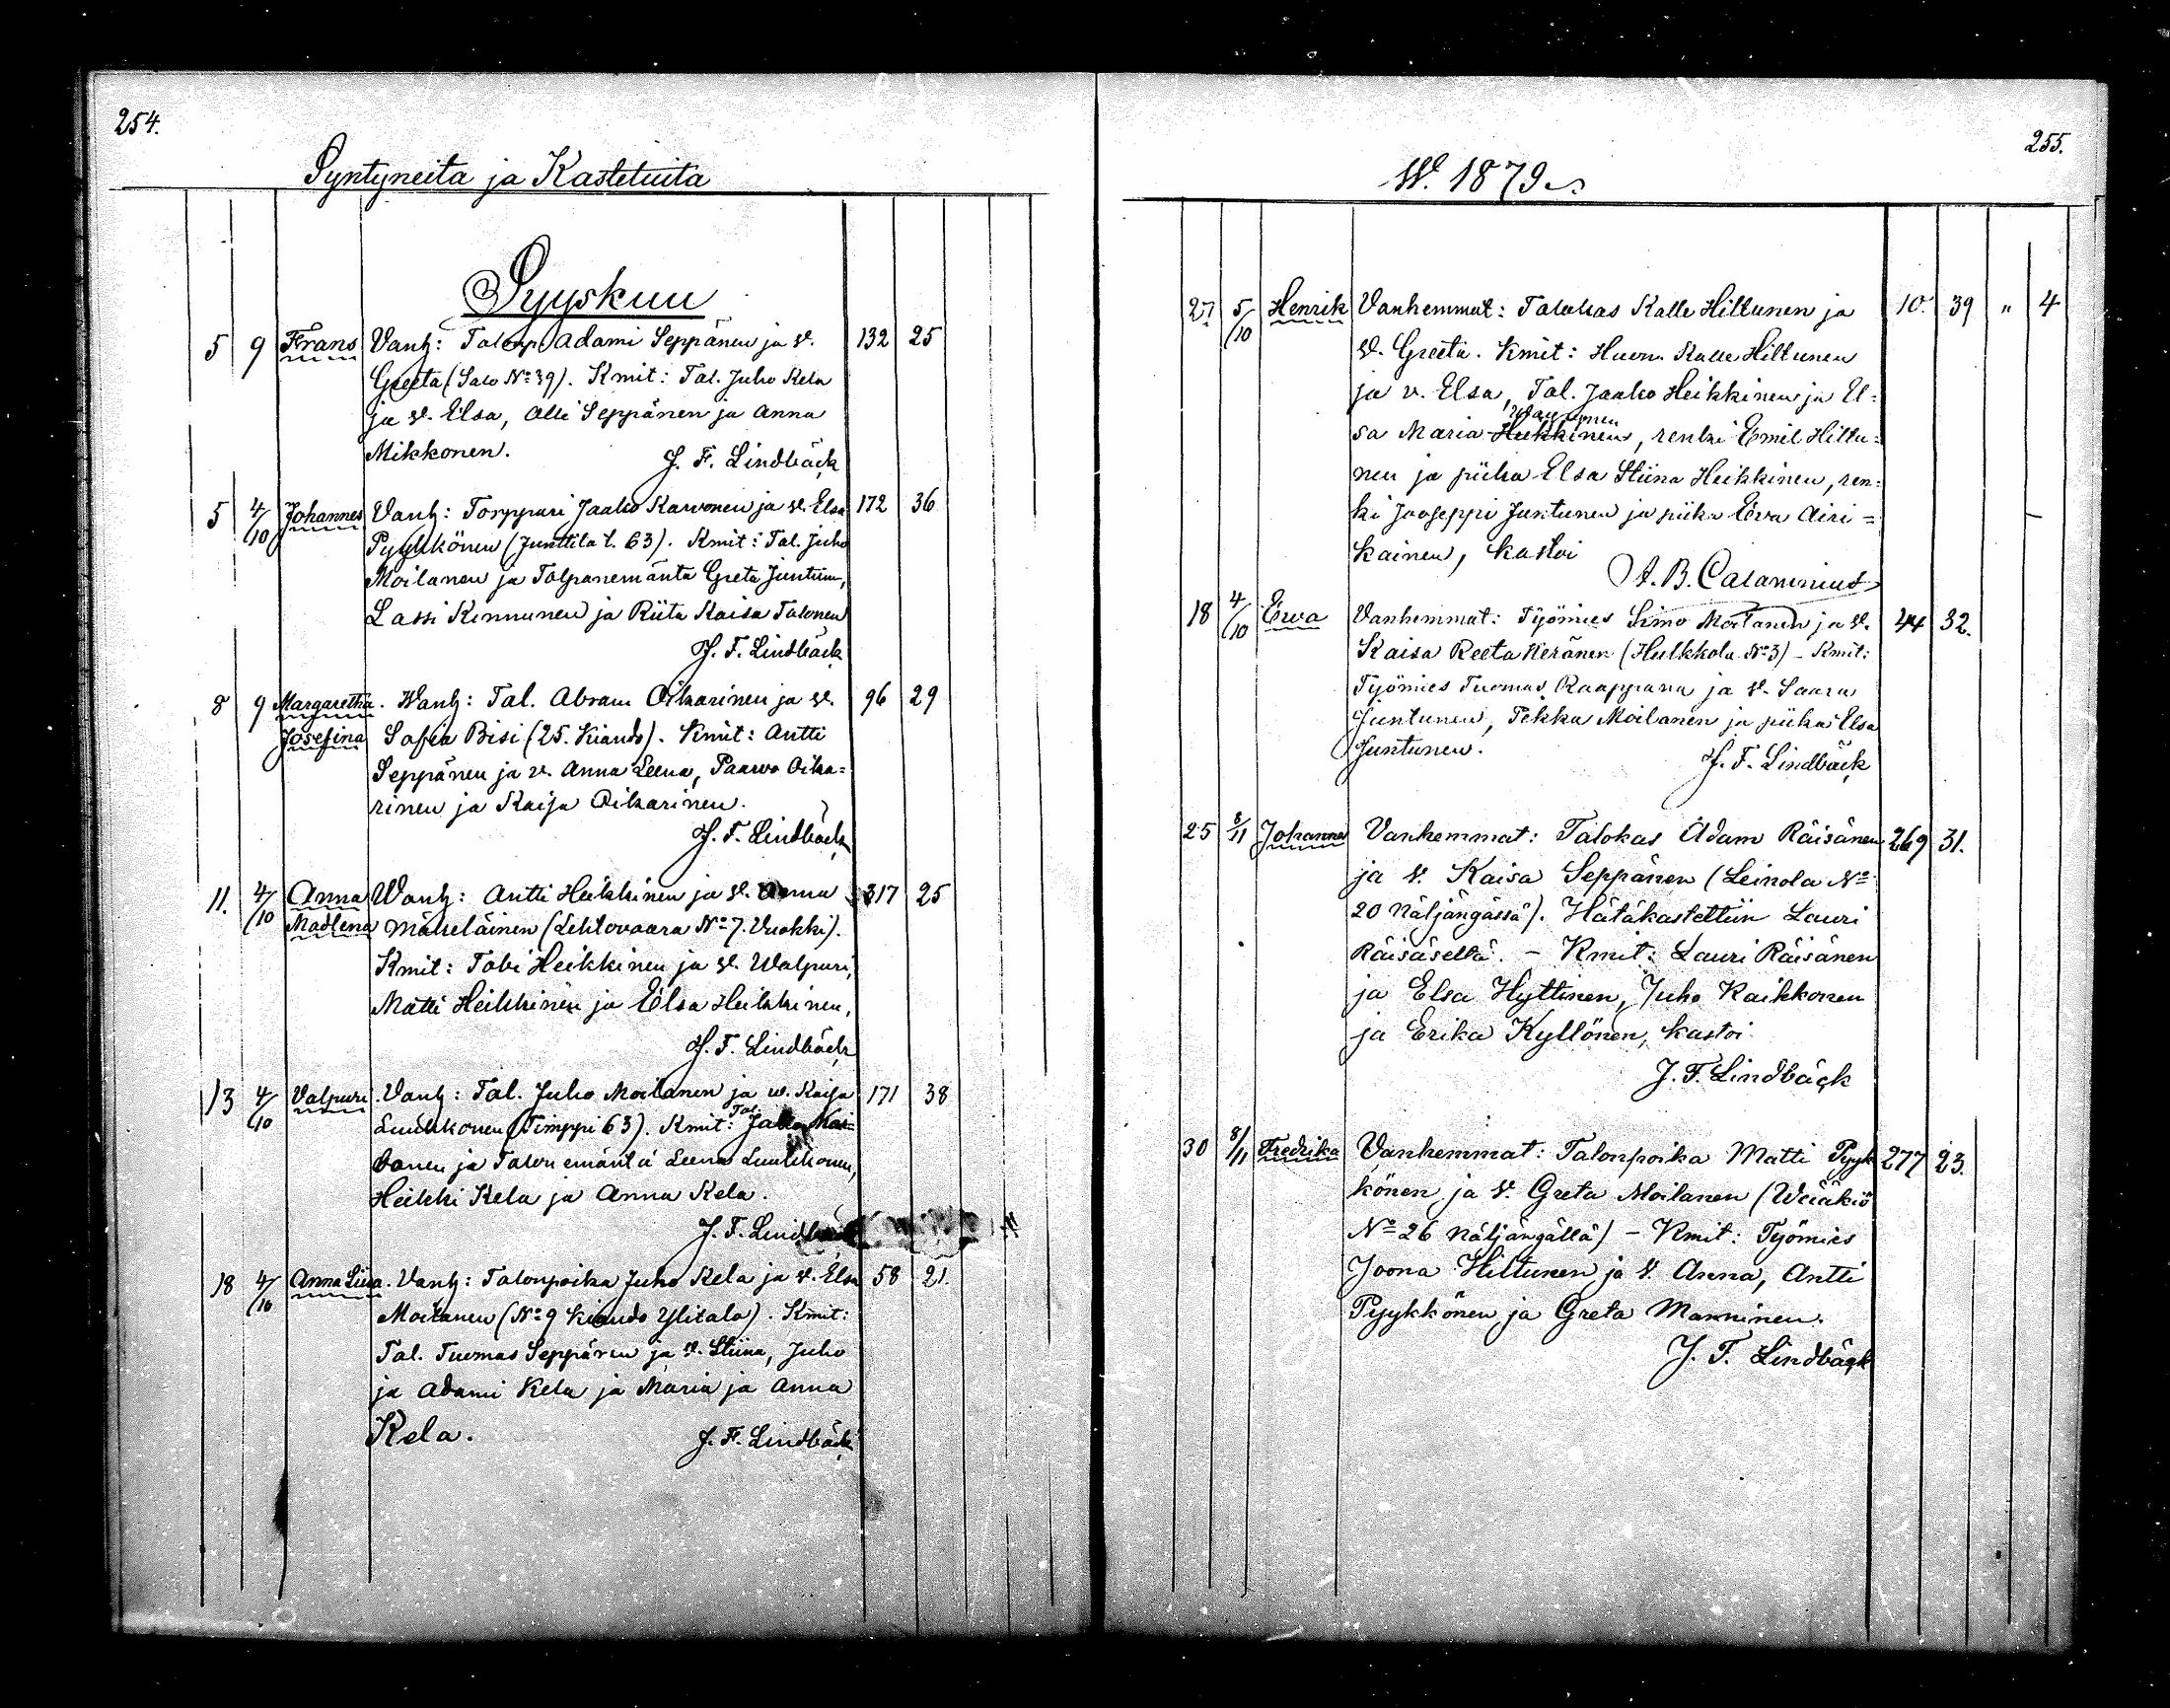 254.
Syntyneitä ja Kastetuita
Syyskuu
5 9 Frans Vanh: Talonp. Adami Seppänen ja v. 132 25
Greeta (Salo No 39). Kmit: Tal. Juho Kela
ja v. Elsa, Olli Seppänen ja Anna
Mikkonen. J. F. Lindbäck
5 4/10 Johannes Vanh: Torppari Jaako Karvonen ja v. Elsa 172 36
Pyykkönen (Junttila t. 63). Kmit: Tal. Juho
Moilanen ja Talpanemäntä Greta
Lassi Kinnunen ja Riita Kaisa Talonen
J. F. Lindbäck
8 9 Margaretha Wanh: Tal. Abram Oikarinen ja v. 96 29
Josefina Sofia Bisi (25. Kianto). Kmit: Antti
Seppänen ja v. Anna Leena, Paavo Oika=
rinen ja Kaija Oikarinen.
J. F. Lindbäck
11. 4/10 Anna Wanh: Antti Heikkinen ja v. Anna 317 25
Madlena Mäkeläinen (Lehtovaara No 7. Vuokki).
Kmit: Tobi Heikkinen ja v. Walpuri,
Matti Heikkinen ja Elsa Heikkinen,
J. F. Lindbäck
13 4/10 Valpuri Vanh: Tal. Juho Moilanen ja w. Kaija 171 38
Luukkonen (Timppi 63). Kmit: Tal.
ja Talon emäntä Leena Luukkonen,
Heikki Kela ja Anna Kela.
J. F. Lindbäck
18 4/10 Anna Liisa. Vanh: Talonpoika Juho Kela ja v. Elsa 58 21.
Moilanen (No 9 Kianto Ylitalo). Kmit:
Tal. Tuomas Seppänen ja v. Stiina, Juho
ja Adami Kela ja Maria ja Anna
Kela. J. F. Lindbäck
255.
W. 1879.
27. 5/10 Henrik Vanhemmat: Talokas Kalle Hiltunen ja 10. 39 " 4
v. Greeta. Kmit: Huon. Kalle Hiltunen
ja v. Elsa, Tal. Jaako Heikkinen ja El=
sa Maria Heikkinen, renki Emil Hiltu=
nen ja piika Elsa Stiina Heikkinen, ren=
ki Jooseppi Juntunen ja piika Eeva Airi=
kainen, kastoi
A. B. Calamnius
18 4/10 Eeva Vanhemmat: Työmies Simo Moilanen ja v. 44 32.
Kaisa Reeta Keränen (Hulkkola No 3) - Kmit:
Työmies Tuomas Raappana ja v. Saara
Juntunen, Pekka Moilanen ja piika Elsa
Juntunen. J. F. Lindbäck
25 8/11 Johanna Vanhemmat: Talokas Adam Räisänen 269 31.
ja v. Kaisa Seppänen (Leinola No
20 Näljängässä). Hätäkastettiin Lauri
Räisäseltä. - Kmit: Lauri Räisänen
ja Elsa Hyttinen, Juho Kaikkonen
ja Erika Kyllönen, kastoi
J. F. Lindbäck
30 8/11 Fredrika Vanhemmat: Talonpoika Matti Pyyk 277 23.
könen ja v. Greta Moilanen (
No 26 Näljängällä) - Kmit: Työmies
Joona Hiltunen ja v. Anna, Antti
Pyykkönen ja Greta Manninen.
J. F. Lindbäck